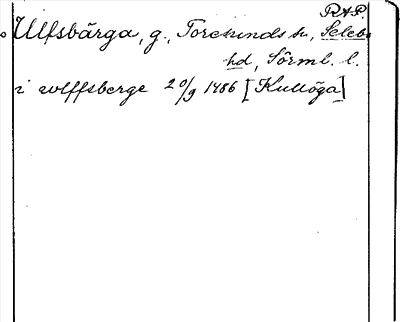 RAP.
Ulfsbärga, g., Toresunds sn, Seleb.
hd, Sörml. l.
i wlffsberge 20/9 1486 [Kullöga]